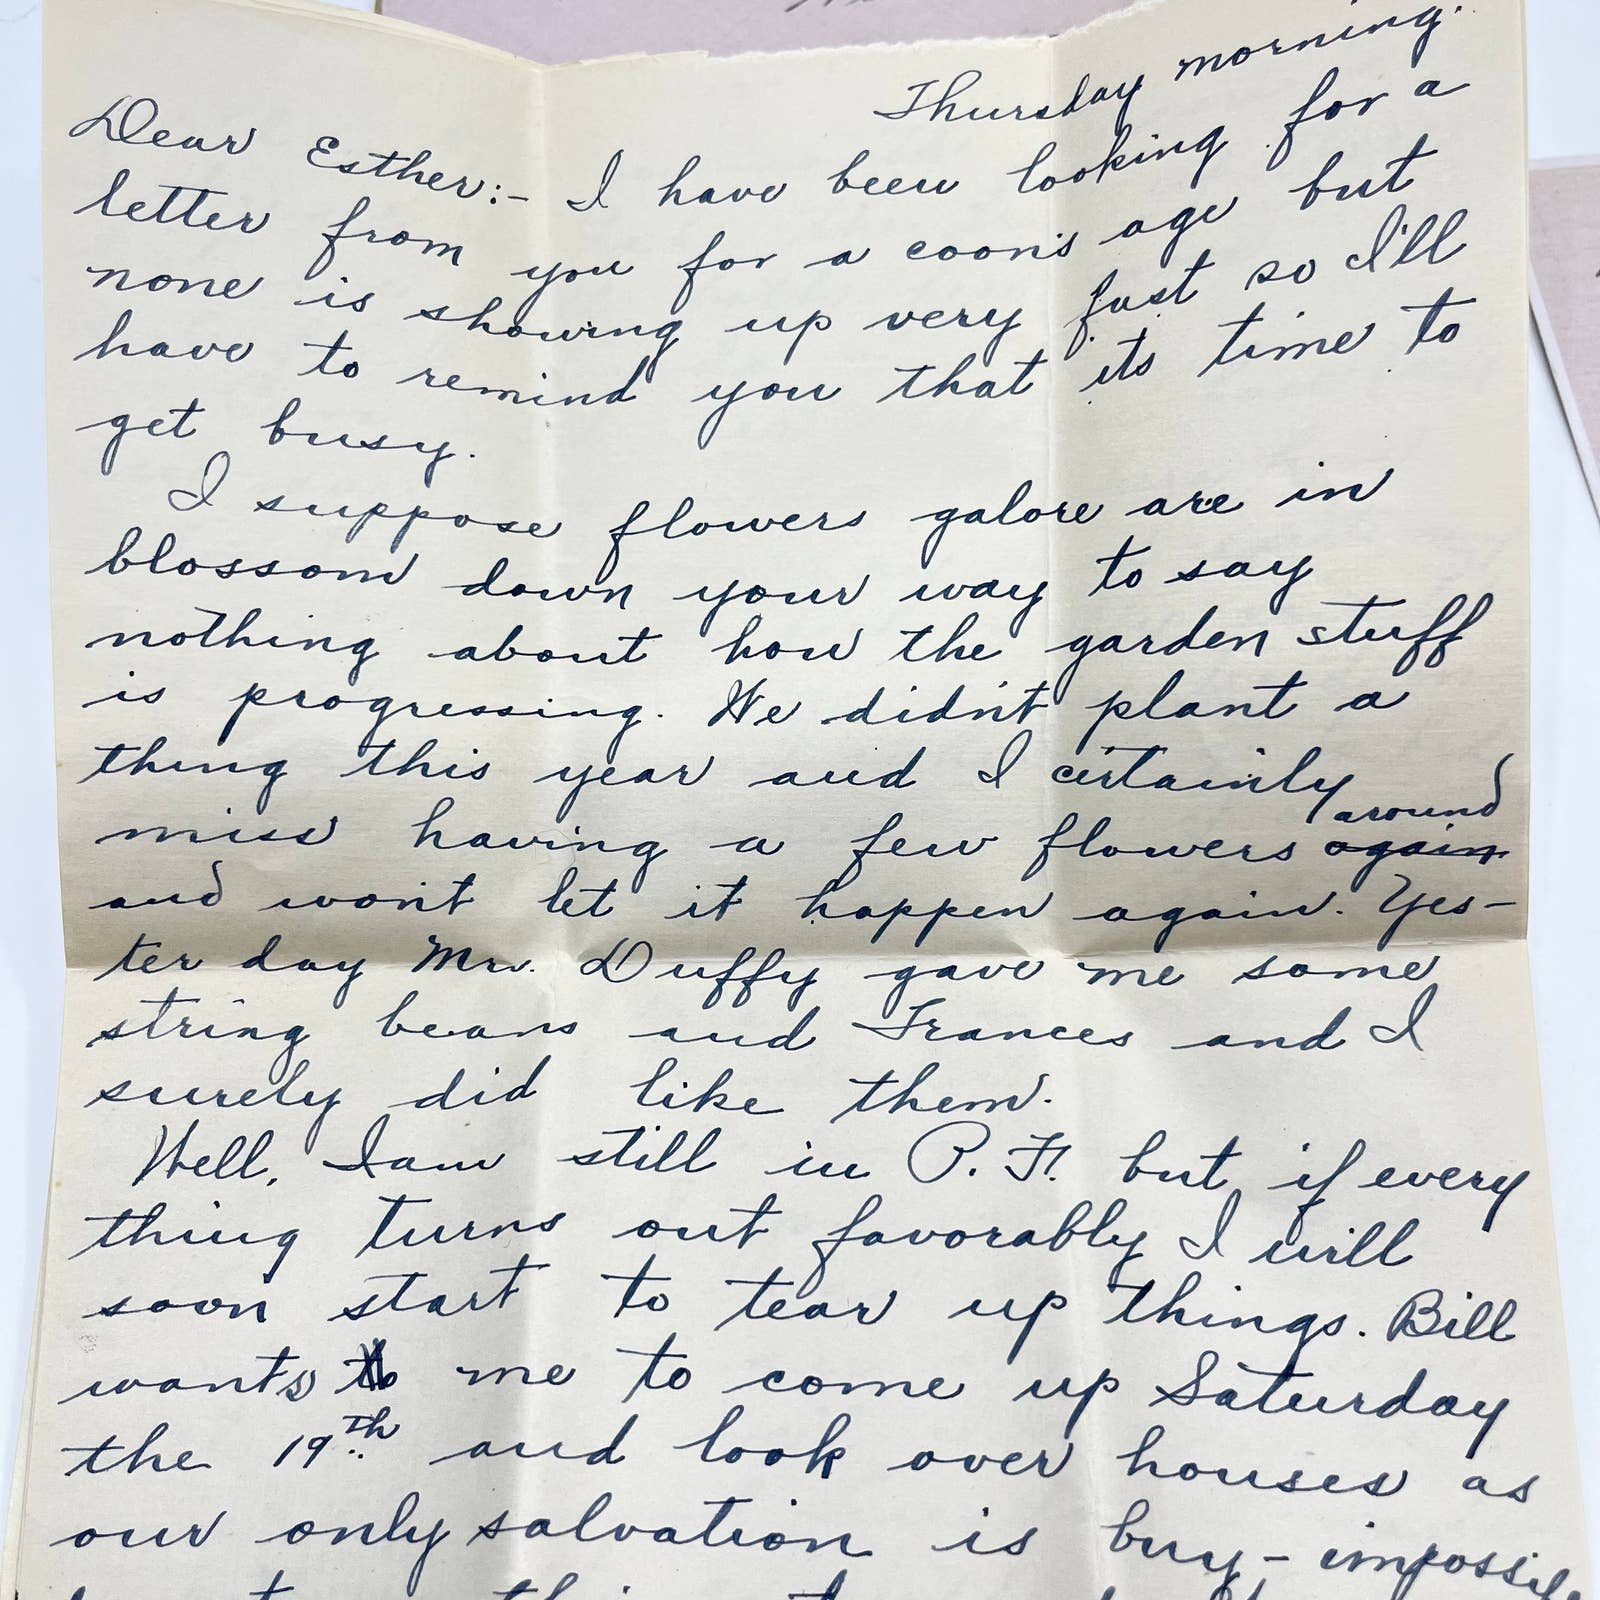 Thursday morning.
Dear Esther:- I have been looking for a
letter from you for a coon's age but
none is showing up very fast so I'll
have to remind you that its time to
get busy.
I suppose flowers galore are in
blossom down your way to say
nothing about how the garden stuff
is progressing. We didn't plant a
thing this year and I certainly
miss having a few flowers again around
and won't let it happen again. Yes-
ter day Mr. Duffy gave me some
string beans and Frances and I
surely did like them.
Well, I am still in P. F. but if every
thing turns out favorably I will
soon start to tear up things. Bill
wants me to come up Saturday
the 19th and look over houses as
our only salvation is buy-